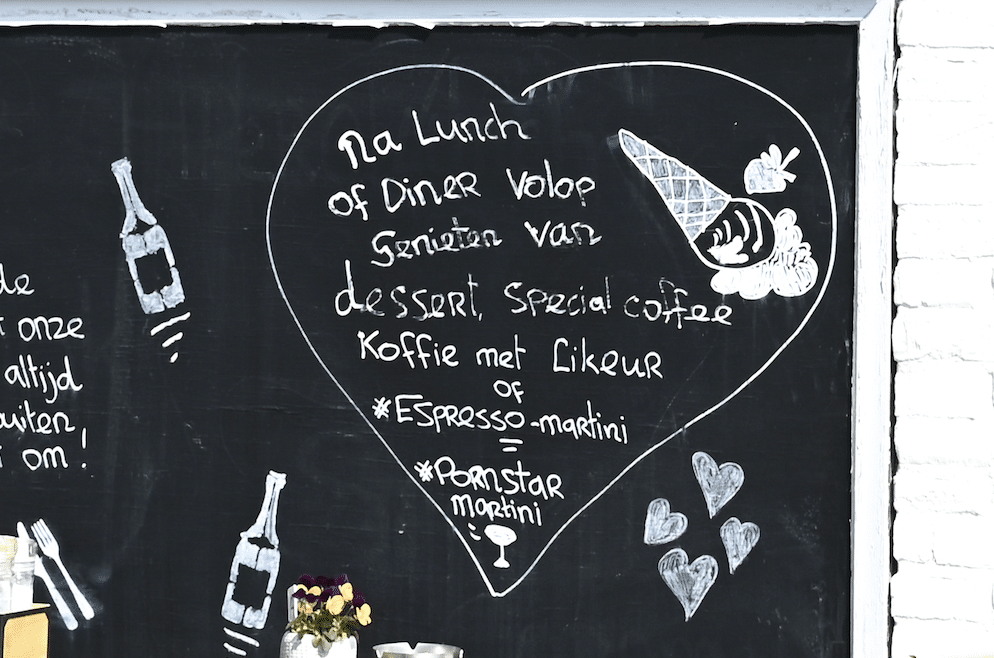 de
onze
altijd
uiten,
om!
Na Lunch
of Diner Volop
genieten van
dessert, Special coffee
Koffie met Likeur
of
*Espresso-martini
*Pornstar
martini